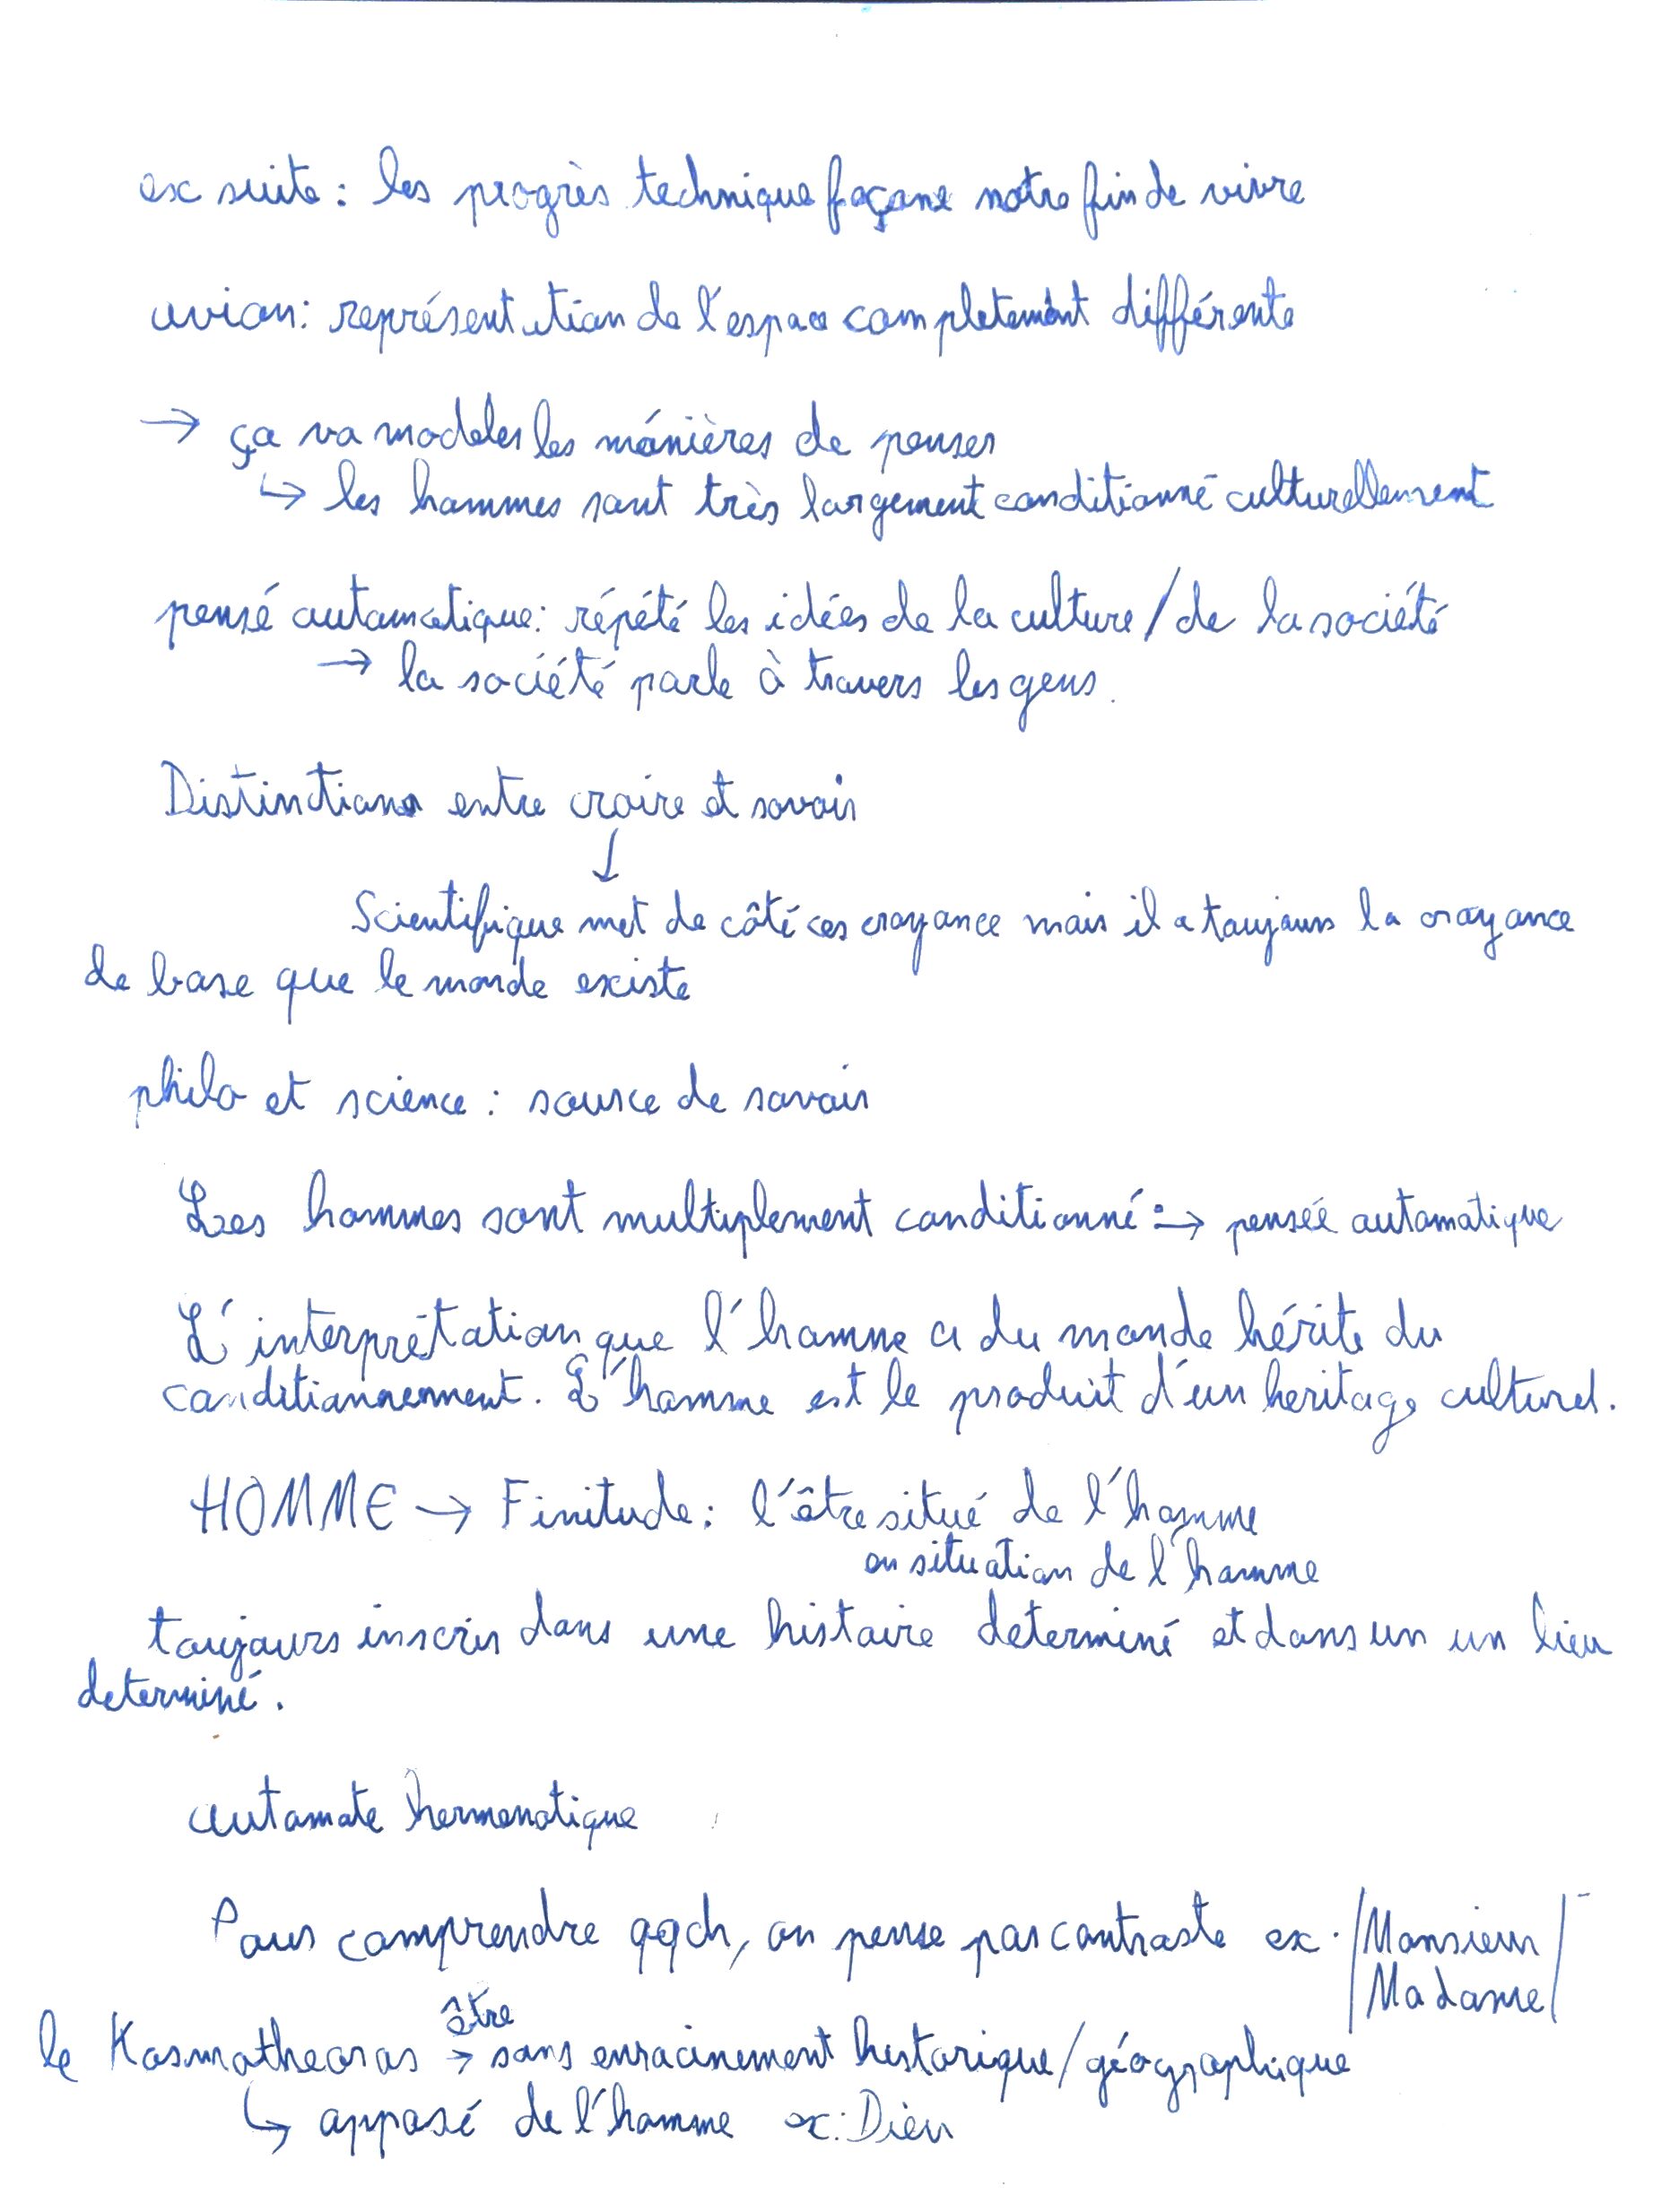 ex suite : les progrès technique façone notre fin de vivre
avion : représentation de l'espace completement différente
→ ça va modeler les manières de penser
↳ les hommes sont très largement conditionné culturellement
pensé automatique : répété les idées de la culture / de la société
→ la société parle à travers les gens.
Distinctions entre croire et savoir
↓
Scientifique met de côté ces croyance mais il a toujours la croyance
de base que le monde existe
philo et science : source de savoir
Les hommes sont multiplement conditionné : → pensée automatique
L'interprétation que l'homme a du monde hérite du
conditionnement. L'homme est le produit d'un heritage culturel.
HOMME → Finitude : l'être situé de l'homme
ou situation de l'homme
toujours inscris dans une histoire determiné et dans un un lieu
determiné.
automate hermenotique
Pour comprendre qqch, on pense par contraste ex. /Monsieur/
Madame/
être
le Kosmotheoros → sans enracinement historique / géographique
↳ opposé de l'homme ex : Dieu